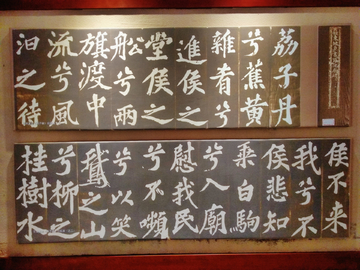 荔子丹
兮蕉黄
雜肴兮
進侯之
堂侯之
船兮兩
旗渡中
流兮風
汩之待
侯不来
我兮不
侯悲知
乗白駒
兮入廟
慰我民
兮不嚬
兮以笑
鵞之山
兮柳之
桂樹水